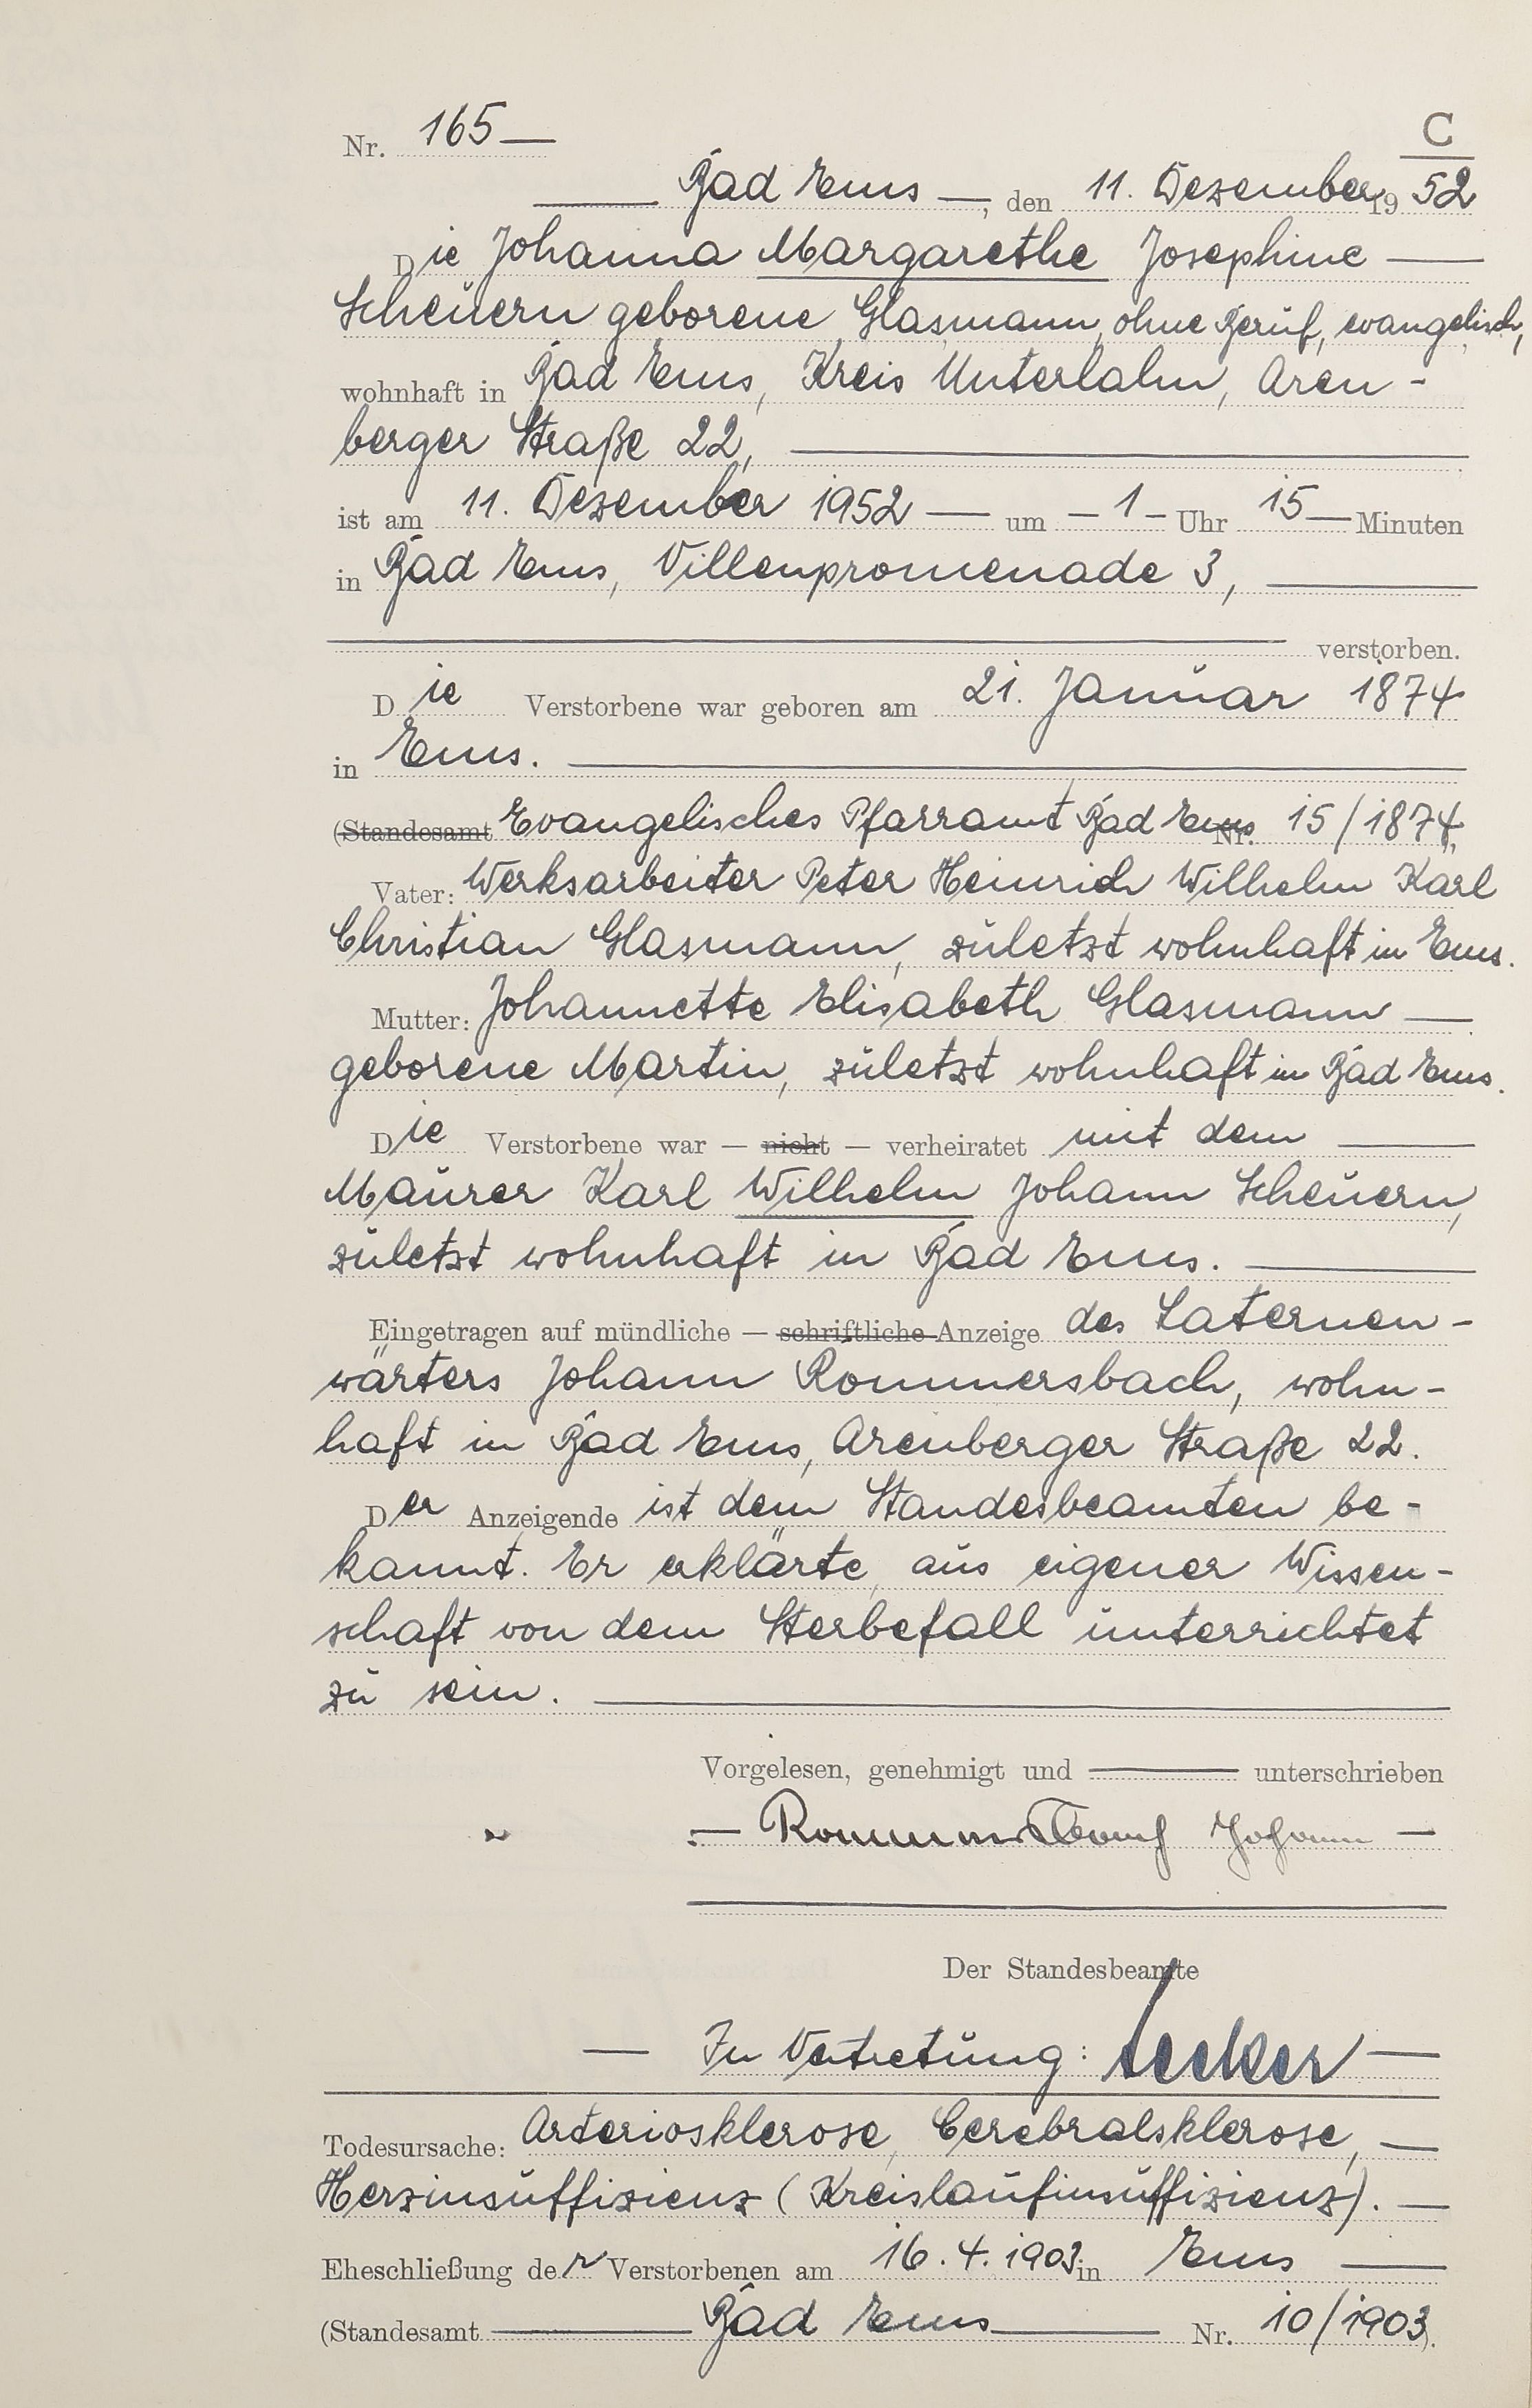 C
Nr. 165
Bad Ems, den 11. Dezember 1952
Die Johanna Margarethe Josephine
Scheuern geborene Glasmann, ohne Beruf, evangelisch,
wohnhaft in Bad Ems, Kreis Unterlahn, Aren-
berger Straße 22,
ist am 11. Dezember 1952 um 1 Uhr 15 Minuten
in Bad Ems, Villenpromenade 3,
verstorben.
Die Verstorbene war geboren am 21. Januar 1874
in Ems.
(Standesamt Evangelisches Pfarramt Bad Ems Nr. 15/1874)
Vater: Werksarbeiter Peter Heinrich Wilhelm Karl
Christian Glasmann, zuletzt wohnhaft in Ems.
Mutter: Johannette Elisabeth Glasmann
geborene Martin, zuletzt wohnhaft in Bad Ems.
Die Verstorbene war — nicht — verheiratet mit dem
Maurer Karl Wilhelm Johann Scheuern,
zuletzt wohnhaft in Bad Ems.
Eingetragen auf mündliche — schriftliche Anzeige des Laternen-
wärters Johann Rommersbach, wohn-
haft in Bad Ems, Arenberger Straße 22.
Der Anzeigende ist dem Standesbeamten be-
kannt. Er erklärte, aus eigener Wissen-
schaft von dem Sterbefall unterrichtet
zu sein.
Vorgelesen, genehmigt und unterschrieben
Rommersbach Johann
Der Standesbeamte
In Vertretung:
Todesursache: Arteriosklerose, Cerebralsklerose,
Herzinsuffizienz (Kreislaufinsuffizienz).
Eheschließung der Verstorbenen am 16.4.1903 in Ems
(Standesamt Bad Ems Nr. 10/1903).